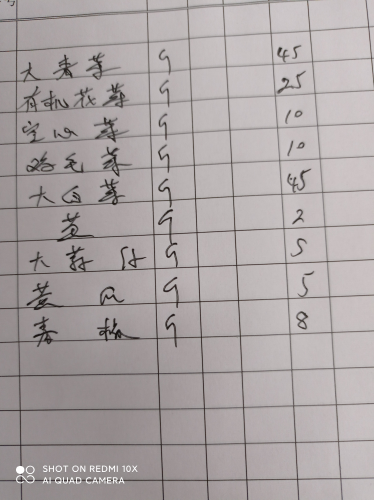 大青菜 斤 45
有机花菜 斤 25
空心菜 斤 10
鸡毛菜 斤 10
大白菜 斤 45
斤 2
大蒜 斤 5
斤 5
斤 8
SHOT ON REDMI 10X
AI QUAD CAMERA